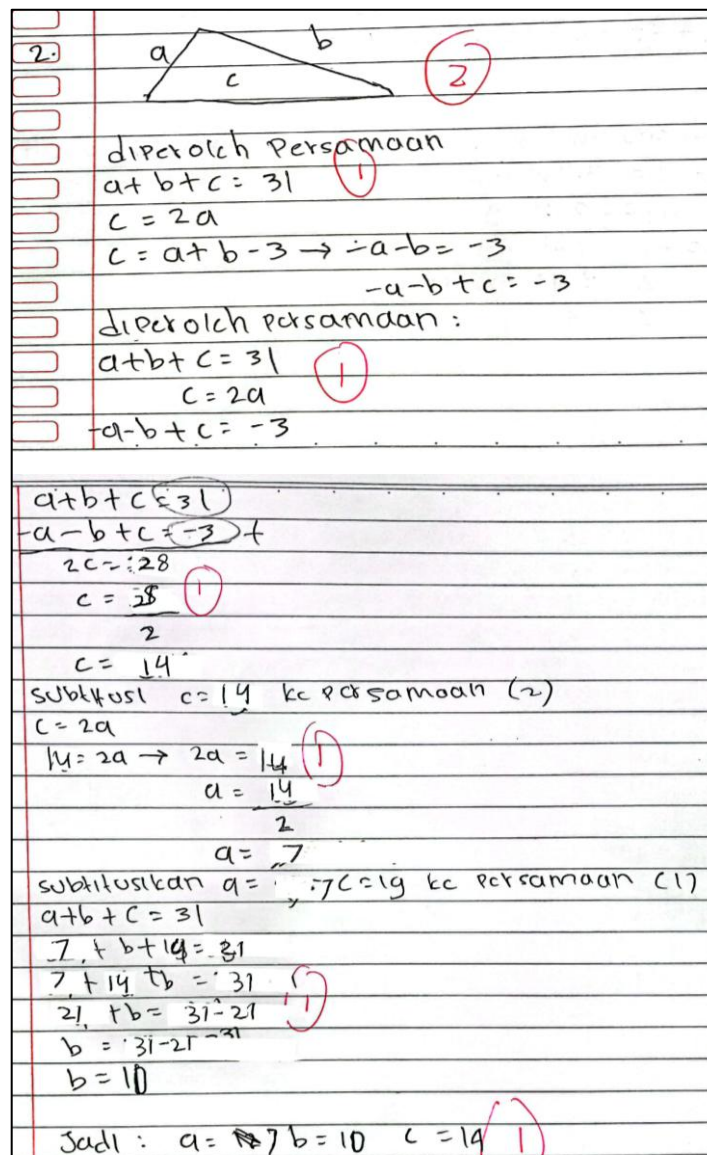 2.
a b
c
2
diperoleh Persamaan
a + b + c = 31 1
c = 2a
c = a + b - 3 → -a - b = -3
-a - b + c = -3
diperoleh persamaan :
a + b + c = 31 1
c = 2a
-a - b + c = -3
a + b + c = 31
-a - b + c = -3 +
2c = 28
c = 28 1
2
c = 14
subtitusi c = 14 ke persamaan (2)
c = 2a
14 = 2a → 2a = 14 1
a = 14
2
a = 7
subtitusikan a = 7 c = 14 ke persamaan (1)
a + b + c = 31
7 + b + 14 = 31
7 + 14 + b = 31
21 + b = 31 - 21 1
b = 31 - 21
b = 10
Jadi : a = 7 b = 10 c = 14 1